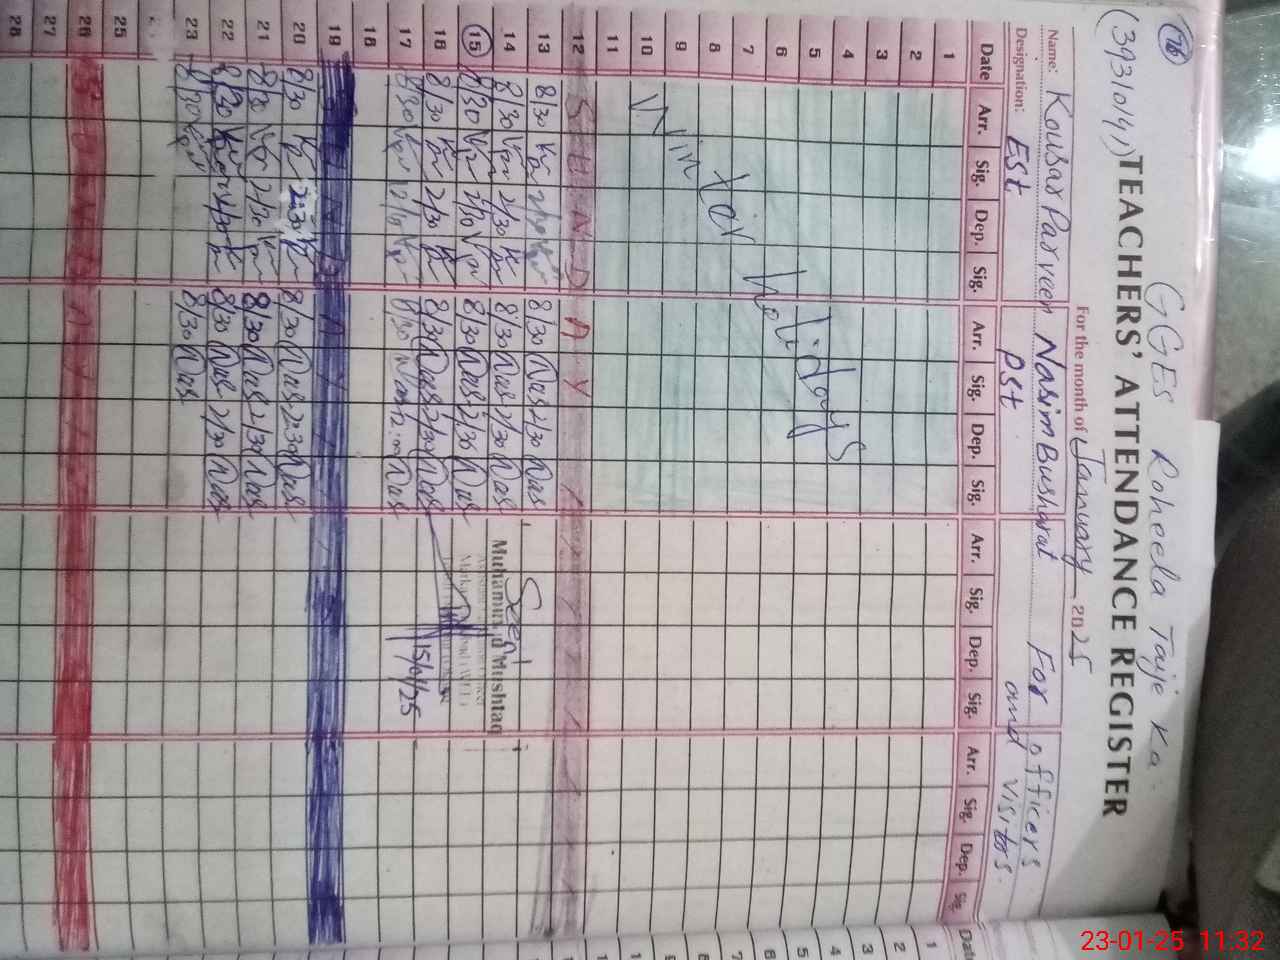 76
GGES Roheela Taije Ka
(39310141)
TEACHERS' ATTENDANCE REGISTER
For the month of January 2025
Name: Kousar Parveen Nasim Busharat For officers
Designation: Est Pst and visitors.
Date Arr. Sig. Dep. Sig. Arr. Sig. Dep. Sig. Arr. Sig. Dep. Sig. Arr. Sig. Dep. Sig.
1
2
3
4
5
6
7
8
9
10
Winter holidays
11
12 SUNDAY
13 8/30 8/30 Nas 2/30 Nas
14 8/30 2/30 8/30 Nas 2/30 Nas
Seen
Muhammad Mushtaq
15 8/30 2/30 8/30 Nas 2/30 Nas
16 8/30 2/30 8/30 Nas 2/30 Nas
15/01/25
17 8/30 12/00 8/30 Nas 12:00 Nas
18
19 SUNDAY
20 8/30 2:30 8/30 Nas 2:30 Nas
21 8/30 2/30 8/30 Nas 2/30 Nas
22 8/30 2/30 8/30 Nas 2/30 Nas
23 8/30 8/30 Nas
25
26
27
28
23-01-25 11:32